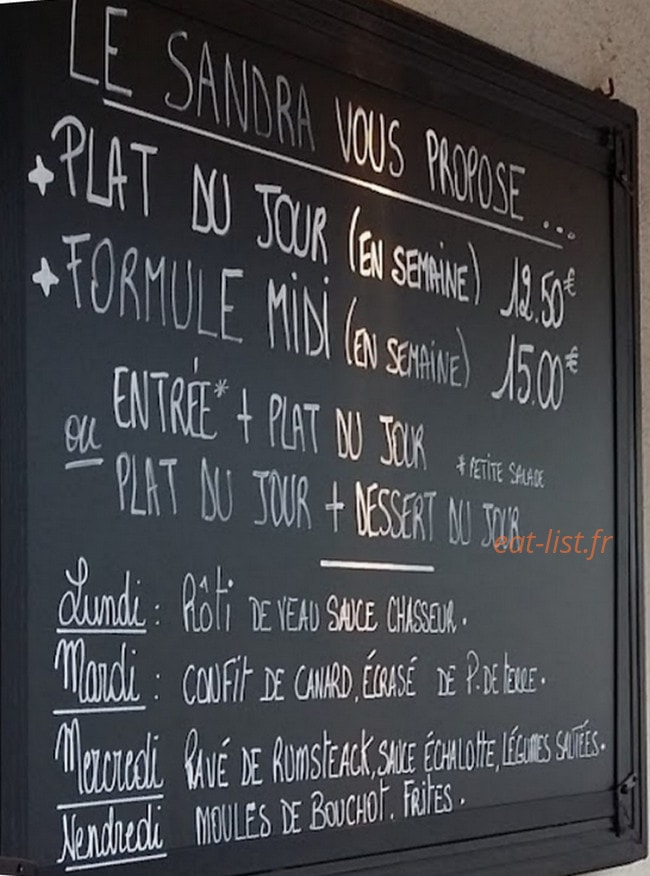 LE SANDRA VOUS PROPOSE ...
+ PLAT DU JOUR (EN SEMAINE) 12.50€
+ FORMULE MIDI (EN SEMAINE) 15.00€
ENTRÉE* + PLAT DU JOUR
ou
*PETITE SALADE
PLAT DU JOUR + DESSERT DU JOUR
eat-list.fr
Lundi : Rôti DE VEAU SAUCE CHASSEUR.
Mardi : CONFIT DE CANARD, ÉCRASÉ DE P. DE TERRE.
Mercredi PAVÉ DE RUMSTEACK, SAUCE ÉCHALOTTE, LÉGUMES SAUTÉES.
Vendredi MOULES DE BOUCHOT. FRITES.